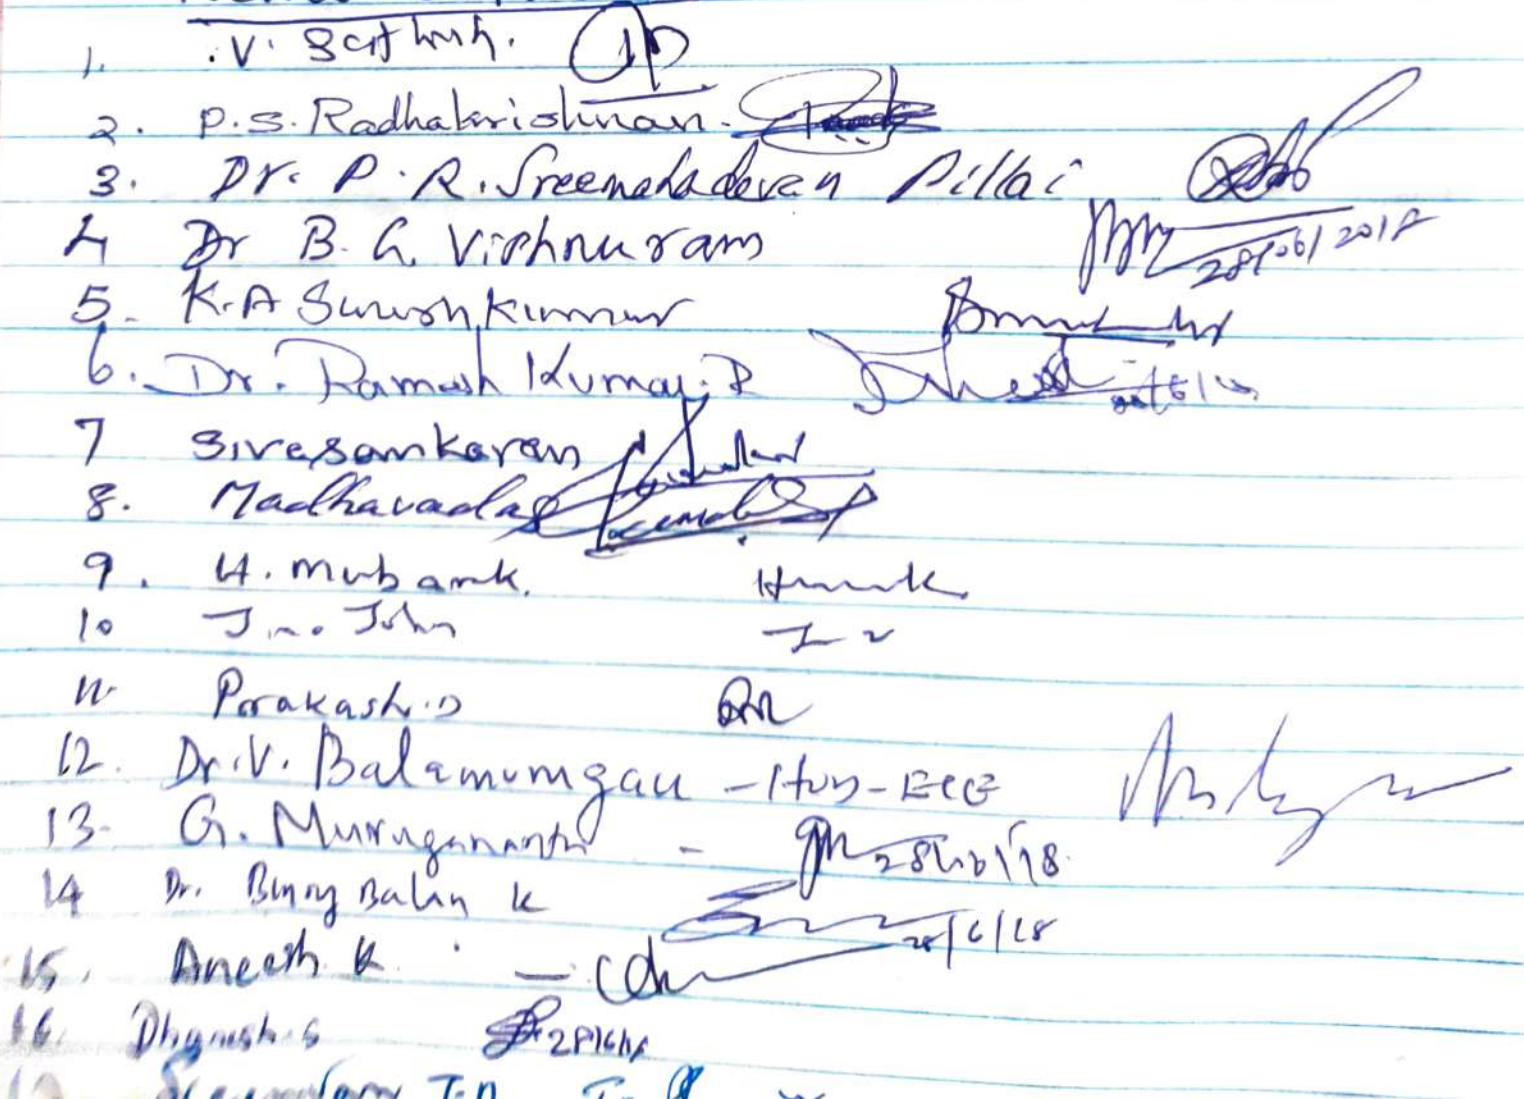 1. V. Sathish.
2. P.S. Radhakrishnan.
3. Dr. P. R. Sreemahadevan Pillai
4 Dr B. G. Vishnuram 28/06/2018
5. K.A Sureshkumar
6. Dr. Ramesh Kumar. R
7 Sivasankaran
8. Madhavadas
9. H. Mubarak.
10 John
11. Prakash.D
12. Dr.V. Balamurugan - HOD - ECE
13. G. Murugananth - 28/06/18.
14 Dr. Binoy Balan K 28/6/18
15. Aneesh K. -
16. Dhanesh.S 28/6/18